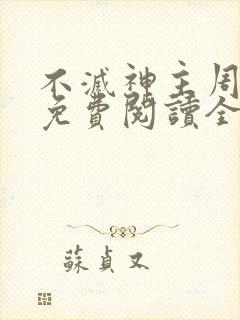 不滅神主周
免費閱讀全
蘇貞又